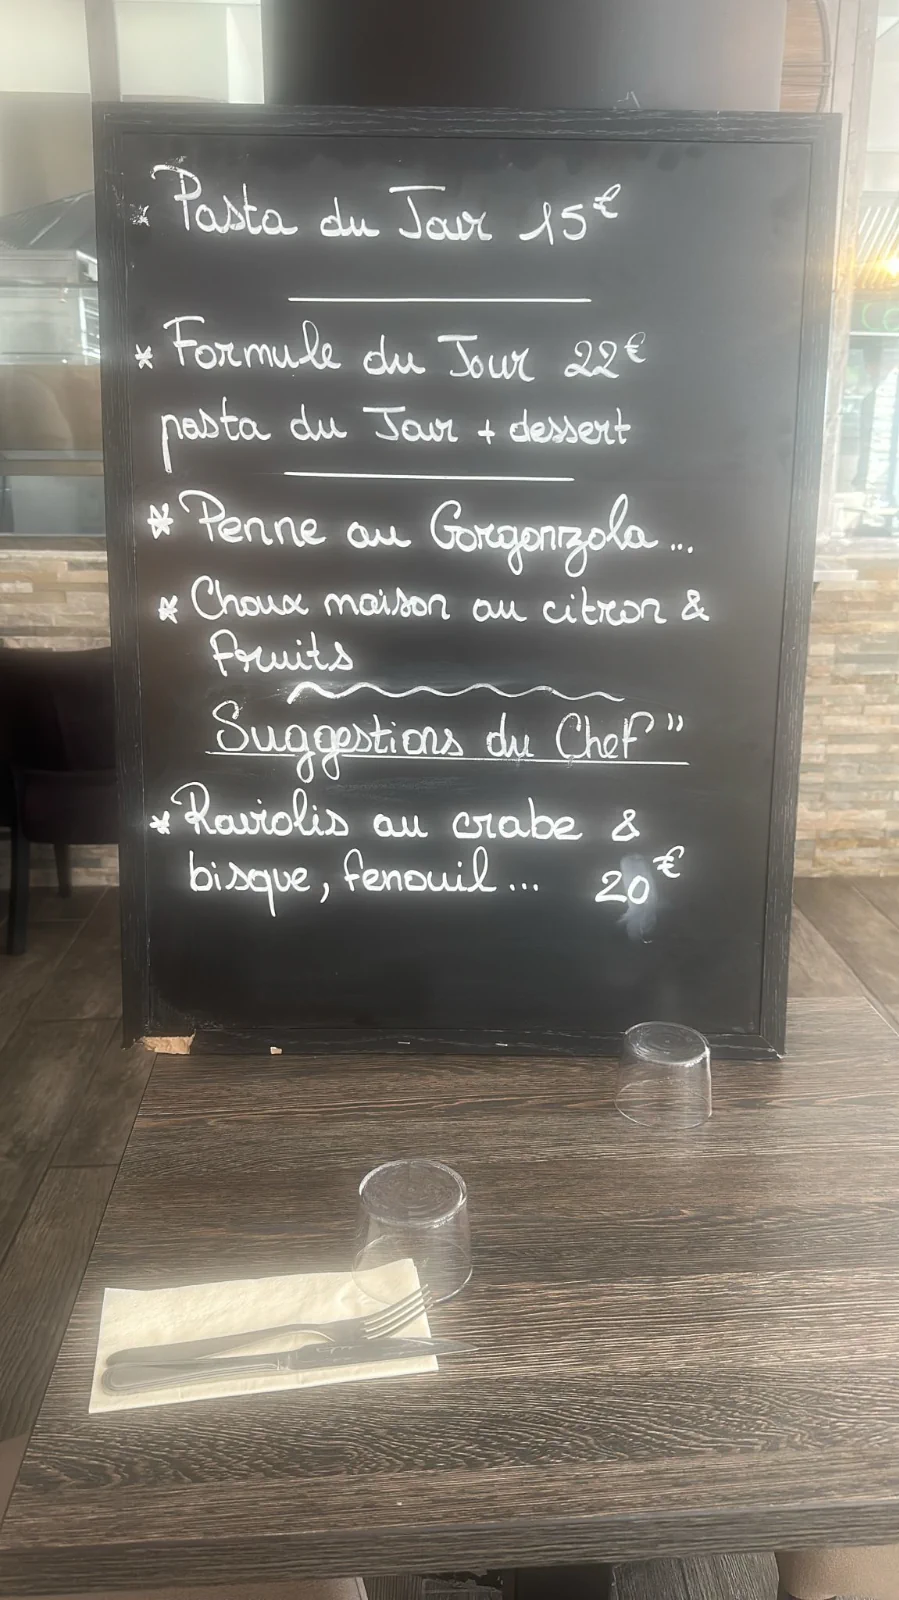 * Pasta du Jour 15€
* Formule du Jour 22€
pasta du Jour + dessert
* Penne au Gorgonzola...
* Choux maison au citron &
fruits
Suggestions du Chef"
* Raviolis au crabe &
bisque, fenouil... 20€